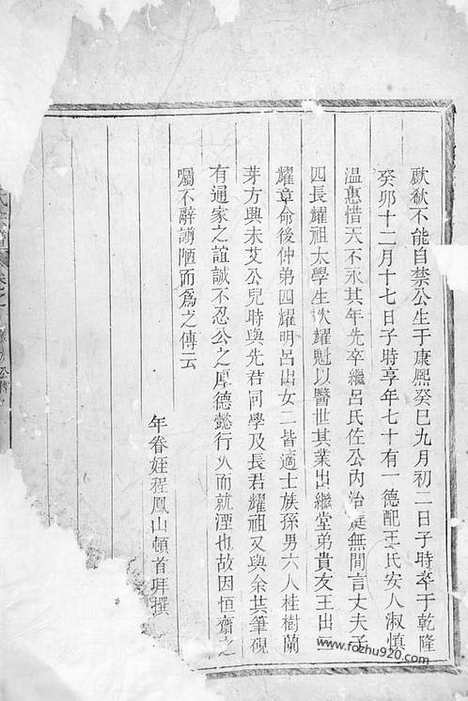 歔欷不能自禁公生于康熙癸巳九月初二日子時卒于乾隆
癸卯十二月十七日子時享年七十有一德配王氏安人淑慎
温惠惜天不永其年先卒繼呂氏佐公內治庭無間言丈夫子
四長耀祖太學生次耀魁以醫世其業出繼堂弟貴友王出
耀章命後仲弟四耀明呂出女二皆適士族孫男六人桂樹蘭
芽方興未艾公兒時與先君同學及長君耀祖又與余共筆硯
有通家之誼誠不忍公之厚德懿行久而就湮也故因恒齋之
囑不辭謭陋而爲之傳云
年眷姪程鳳山頓首拜撰
www.fozhu920.com